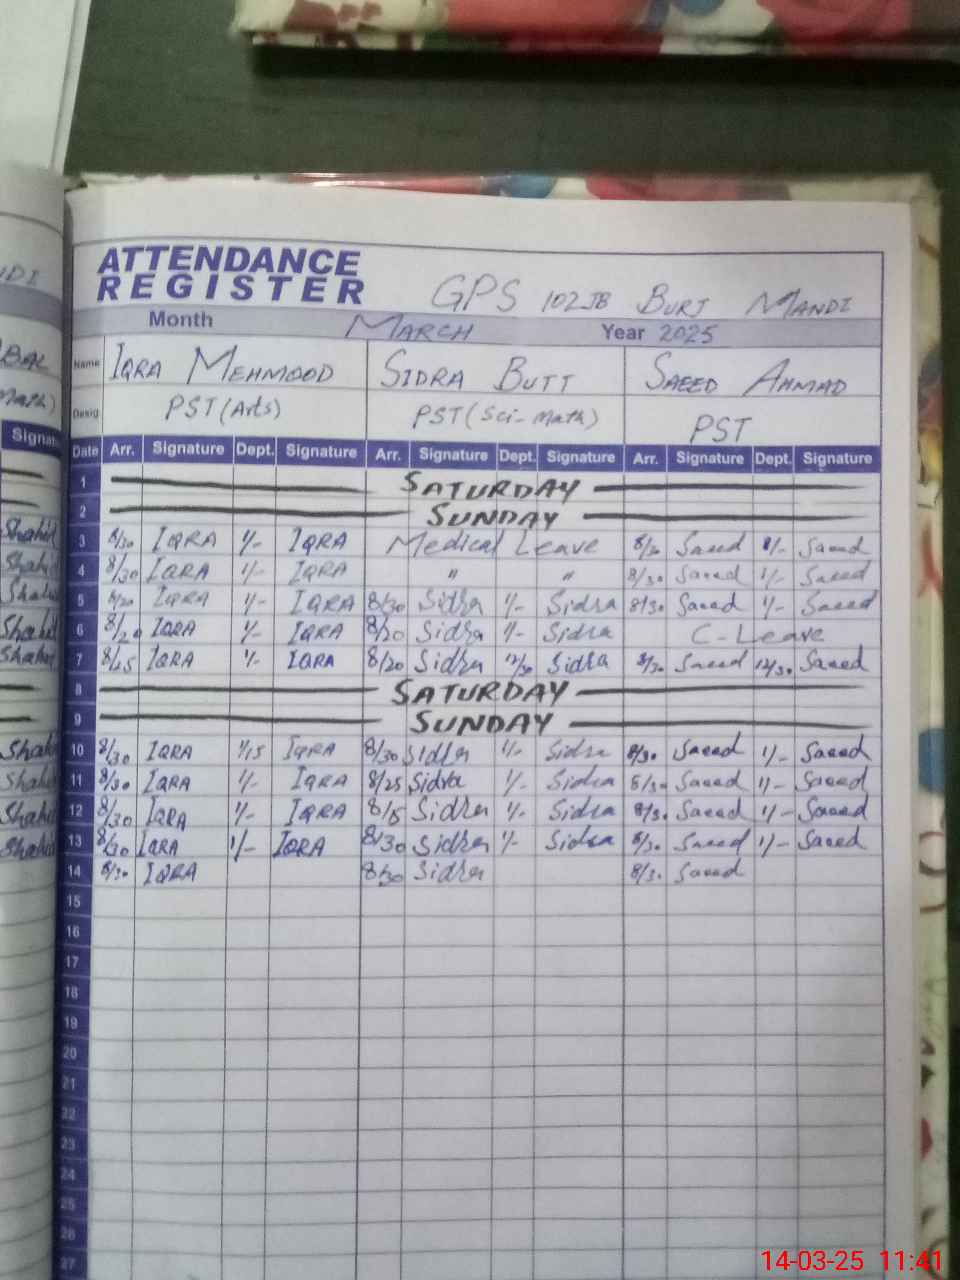 ATTENDANCE
REGISTER
GPS 102JB BURJ MANDI
Month MARCH Year 2025
Name IQRA MEHMOOD SIDRA BUTT SAEED AHMAD
Desig PST (Arts) PST (Sci-Math) PST
Date Arr. Signature Dept. Signature Arr. Signature Dept. Signature Arr. Signature Dept. Signature
1 SATURDAY
2 SUNDAY
3 8/30 IQRA 1/- IQRA Medical Leave 8/30 Saeed 1/- Saeed
4 8/30 IQRA 1/- IQRA " " 8/30 Saeed 1/- Saeed
5 8/20 IQRA 1/- IQRA 8/30 Sidra 1/- Sidra 8/30 Saeed 1/- Saeed
6 8/20 IQRA 1/- IQRA 8/20 Sidra 1/- Sidra C-Leave
7 8/25 IQRA 1/- IQRA 8/20 Sidra 12/30 Sidra 8/30 Saeed 12/30 Saeed
8 SATURDAY
9 SUNDAY
10 8/30 IQRA 1/15 IQRA 8/30 Sidra 1/- Sidra 8/30 Saeed 1/- Saeed
11 8/30 IQRA 1/- IQRA 8/25 Sidra 1/- Sidra 8/30 Saeed 1/- Saeed
12 8/30 IQRA 1/- IQRA 8/15 Sidra 1/- Sidra 8/30 Saeed 1/- Saeed
13 8/30 IQRA 1/- IQRA 8/30 Sidra 1/- Sidra 8/30 Saeed 1/- Saeed
14 8/30 IQRA 8/30 Sidra 8/30 Saeed
15
16
17
18
19
20
21
22
23
24
25
26
27
14-03-25 11:41